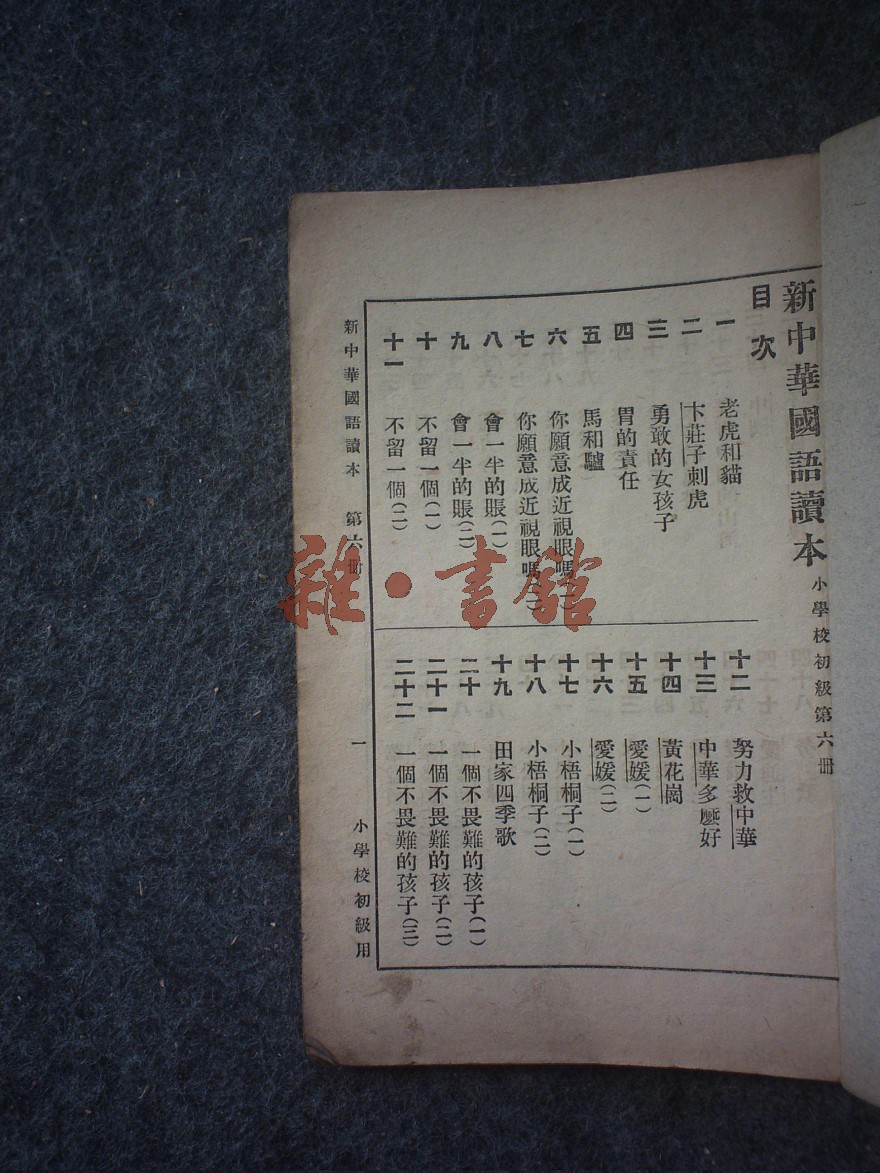 新中華國語讀本 小學校初級第六冊
目次
一 老虎和貓
二 卞莊子刺虎
三 勇敢的女孩子
四 胃的責任
五 馬和驢
六 你願意成近視眼嗎(一)
七 你願意成近視眼嗎(二)
八 會一半的賬(一)
九 會一半的賬(二)
十 不留一個(一)
十一 不留一個(二)
十二 努力救中華
十三 中華多麼好
十四 黃花崗
十五 愛媛(一)
十六 愛媛(二)
十七 小梧桐子(一)
十八 小梧桐子(二)
十九 田家四季歌
二十 一個不畏難的孩子(一)
二十一 一個不畏難的孩子(二)
二十二 一個不畏難的孩子(三)
新中華國語讀本 第六冊 一 小學校初級用
雜·書館